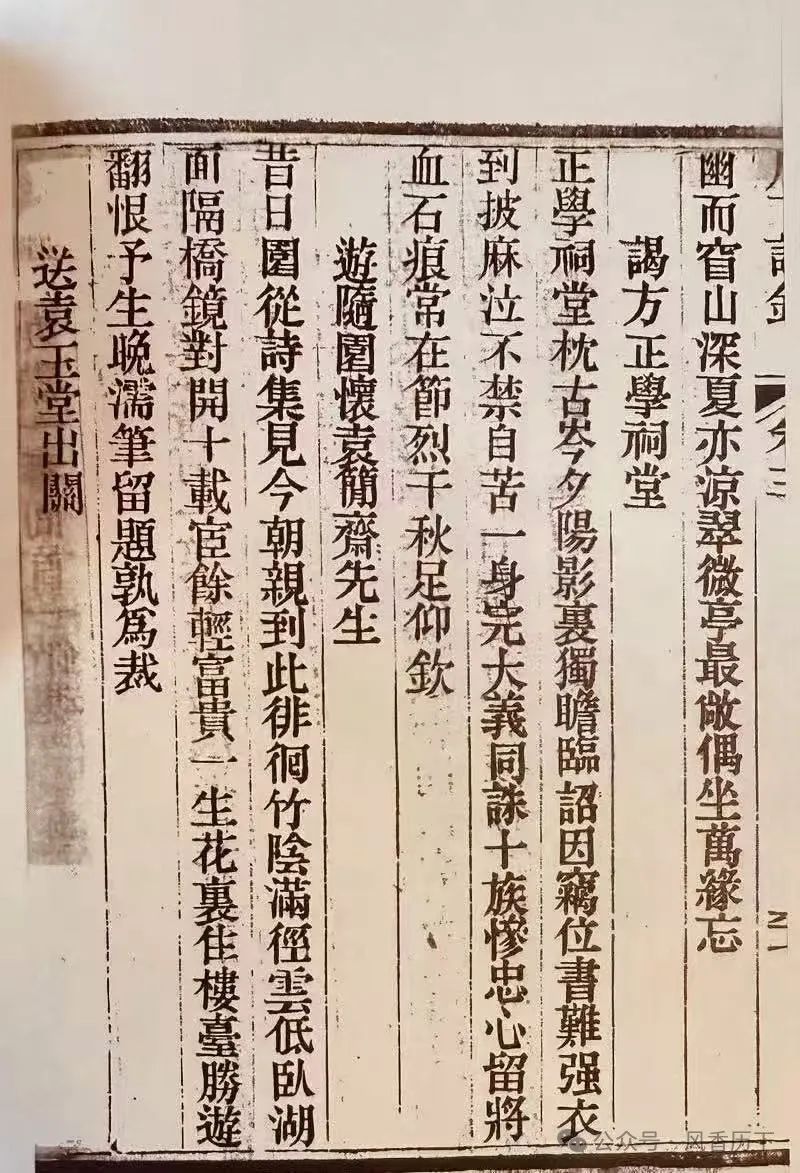 幽而窅山深夏亦涼翠微亭最敞偶坐萬緣忘
謁方正學祠堂
正學祠堂枕古岑夕陽影裏獨瞻臨詔因竊位書難强衣
到披麻泣不禁自苦一身完大義同誅十族慘忠心留將
血石痕常在節烈千秋足仰欽
遊隨園懷袁簡齋先生
昔日園從詩集見今朝親到此徘徊竹陰滿徑雲低臥湖
面隔橋鏡對開十載宦餘輕富貴一生花裏住樓臺勝遊
翻恨予生晚濡筆留題孰爲裁
送袁玉堂出關
公众号·风香历下